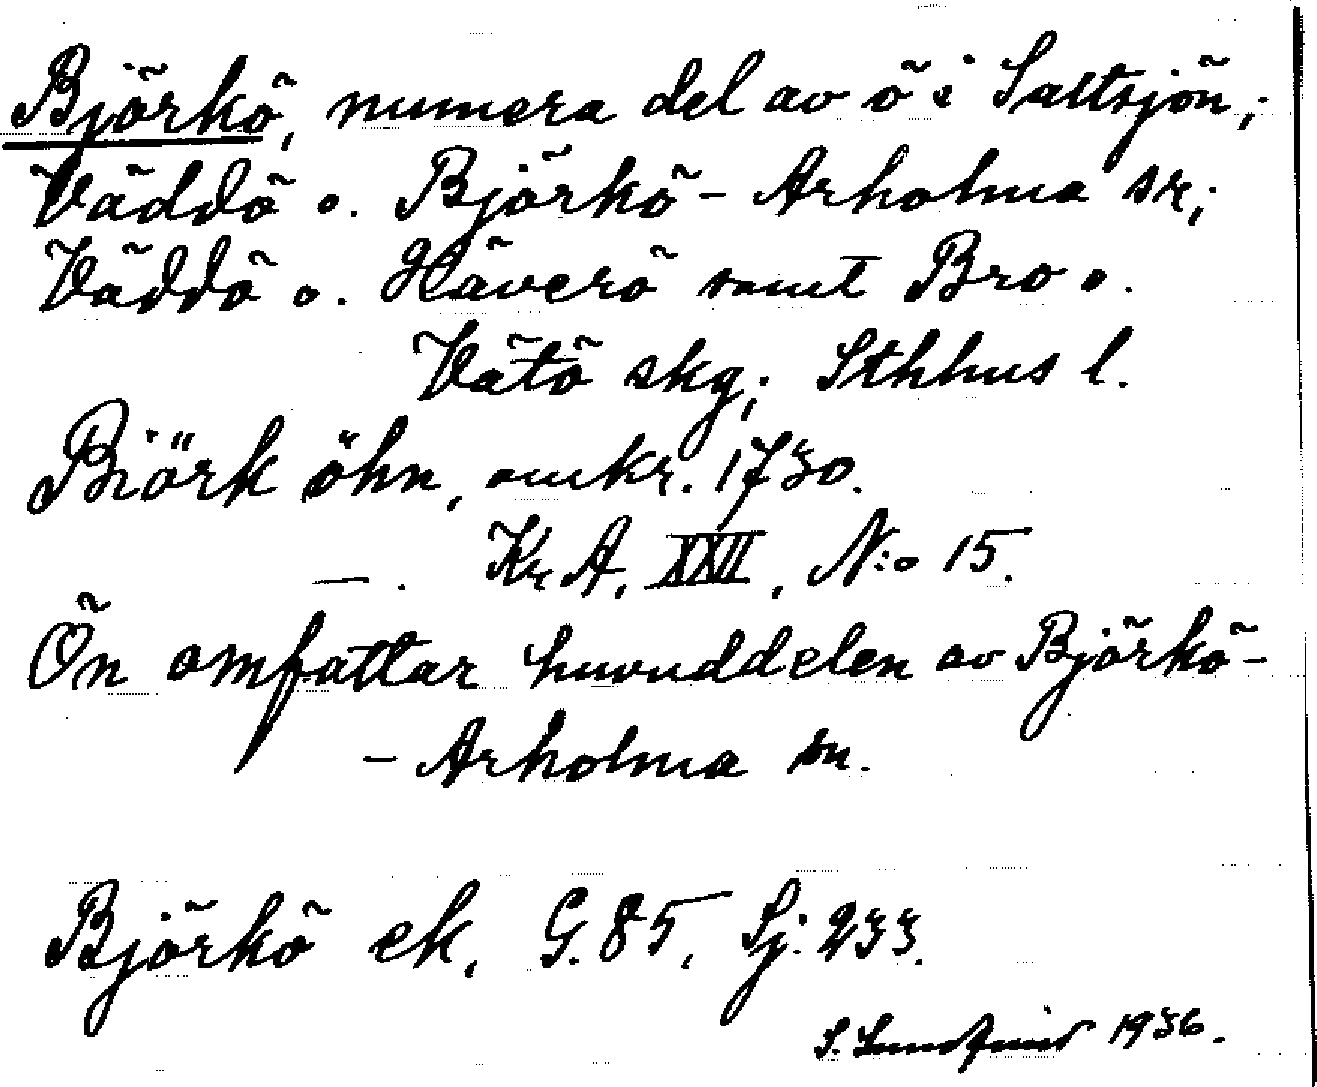 Björkö, numera del av ö i Saltsjön;
Väddö o. Björkö-Arholma sr;
Väddö o. Häverö samt Bro o.
Vätö skg; Sthhus l.
Biörk öhn, omkr. 1730.
—. Kr A, XXII, N:o 15.
Ön omfattar huvuddelen av Björkö-
-Arholma sn.
Björkö ek. G. 85, Sj. 233.
S. Lundquist 1936.